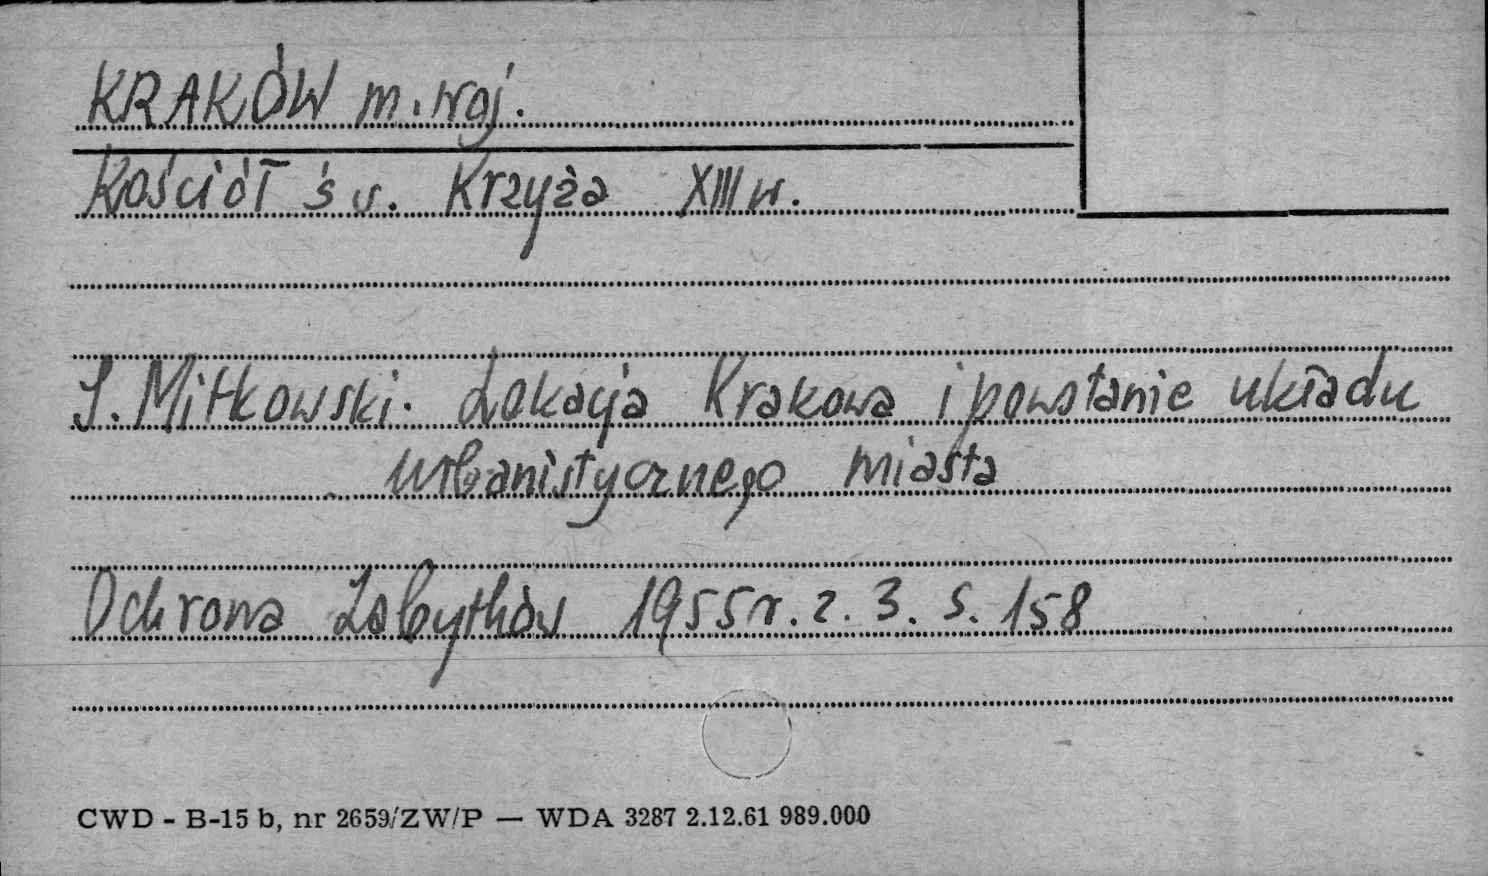 KRAKÓW m. woj.
Kościół św. Krzyża XIII w.
J. Mitkowski. Lokacja Krakowa i powstanie układu
urbanistycznego miasta
Ochrona Zabytków 1955 r. z. 3. s. 158
CWD - B-15 b, nr 2659/ZW/P — WDA 3287 2.12.61 989.000